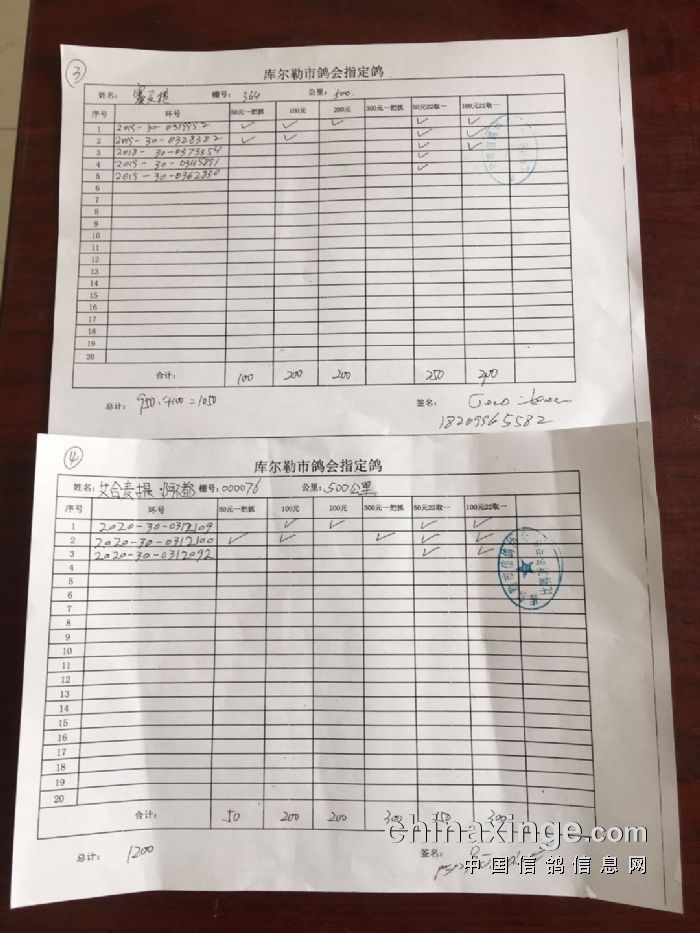 ③
库尔勒市鸽会指定鸽
姓名: 棚号: 364 公里: 500.
序号 环号 50元一把抓 100元 200元 300元一把抓 50元22取一 100元22取一
1 2019-30-0319952 ✓ ✓ ✓ ✓ ✓
2 2019-30-0328382 ✓ ✓ ✓ ✓
3 2018-30-0373354 ✓ ✓
4 2019-30-0345891 ✓
5 2019-30-0362830 ✓
6
7
8
9
10
11
12
13
14
15
16
17
18
19
20
合计: 100 200 200 250 200
总计: 签名:
18209965582
④
库尔勒市鸽会指定鸽
姓名: 棚号: 000076 公里: 500公里
序号 环号 50元一把抓 100元 200元 300元一把抓 50元22取一 100元22取一
1 2020-30-0312109 ✓ ✓ ✓ ✓
2 2020-30-0312100 ✓ ✓ ✓ ✓ ✓
3 2020-30-0312092 ✓ ✓
4
5
6
7
8
9
10
11
12
13
14
15
16
17
18
19
20
合计: 50 200 200 300 150 300
总计: 1200 签名:
chinaxinge.com
中国信鸽信息网